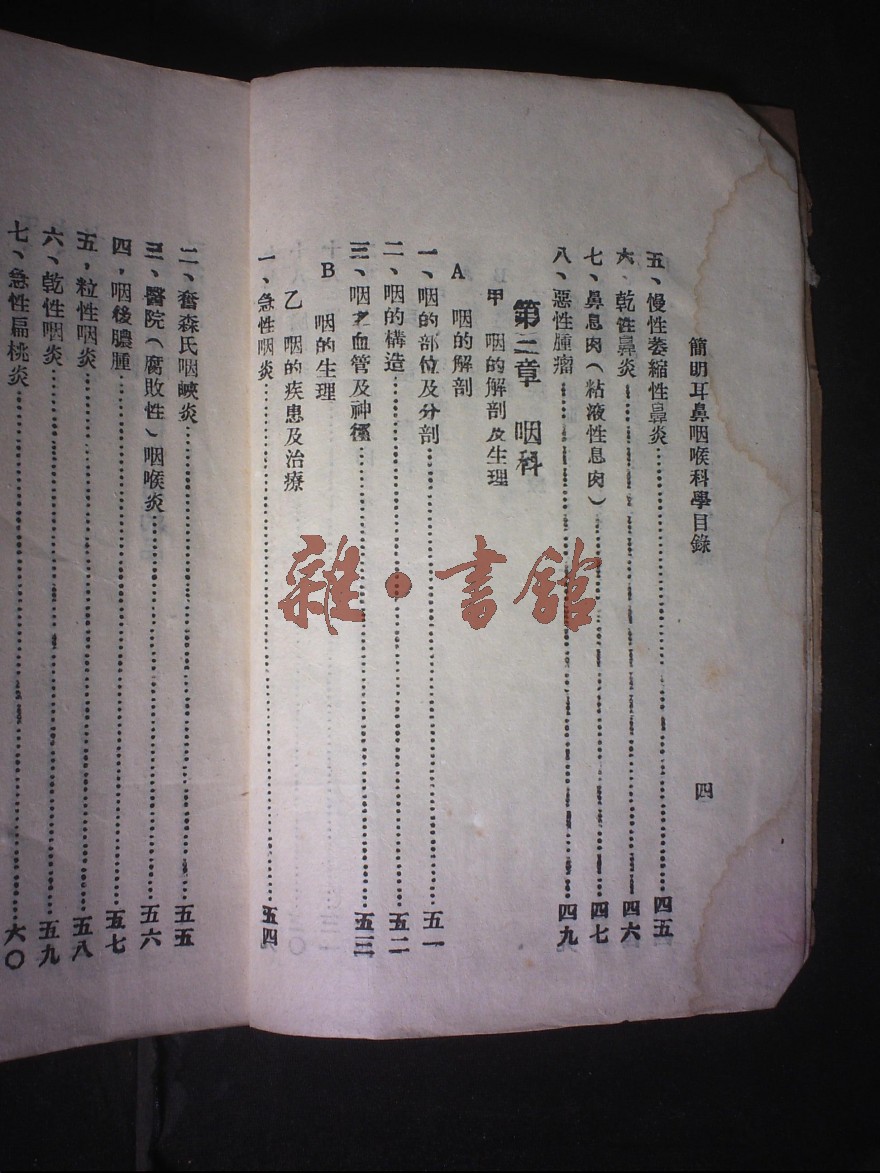 簡明耳鼻咽喉科學目錄
四
五、慢性萎縮性鼻炎……四五
六、乾性鼻炎……四六
七、鼻息肉（粘液性息肉）……四七
八、惡性腫瘤……四九
第三章 咽科
甲 咽的解剖及生理
A 咽的解剖
一、咽的部位及分剖……五一
二、咽的構造……五二
三、咽之血管及神經……五三
B 咽的生理
乙 咽的疾患及治療
一、急性咽炎……五四
二、奮森氏咽峽炎……五五
三、醫院（腐敗性）咽喉炎……五六
四，咽後膿腫……五七
五，粒性咽炎……五八
六、乾性咽炎……五九
七、急性扁桃炎……六〇
雜·書館